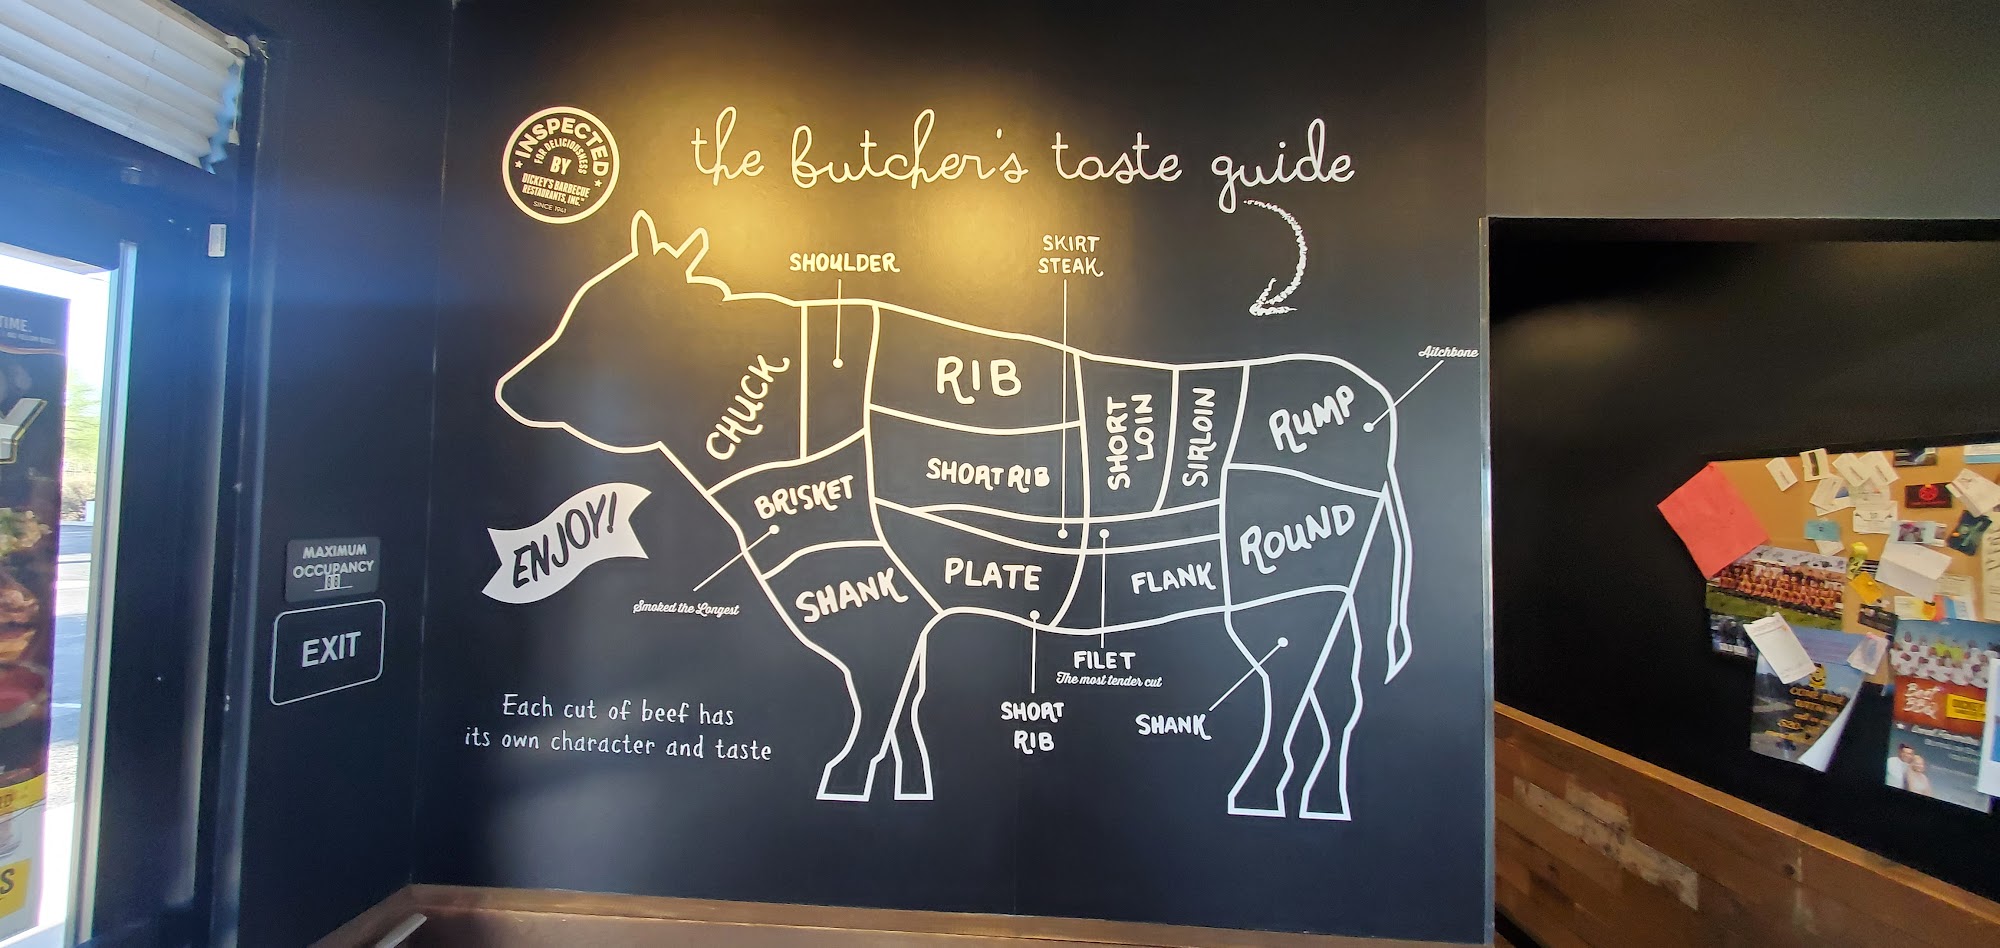 INSPECTED
FOR DELICIOUSNESS
BY
DICKEY'S BARBECUE
RESTAURANTS, INC.
SINCE 1941
the butcher's taste guide
SHOULDER
SKIRT
STEAK
Aitchbone
CHUCK
RIB
SHORT
LOIN
SIRLOIN
RUMP
SHORT RIB
BRISKET
ROUND
ENJOY!
PLATE
FLANK
SHANK
Smoked the Longest
FILET
The most tender cut
SHORT
RIB
SHANK
Each cut of beef has
its own character and taste
MAXIMUM
OCCUPANCY
88
EXIT
TIME.